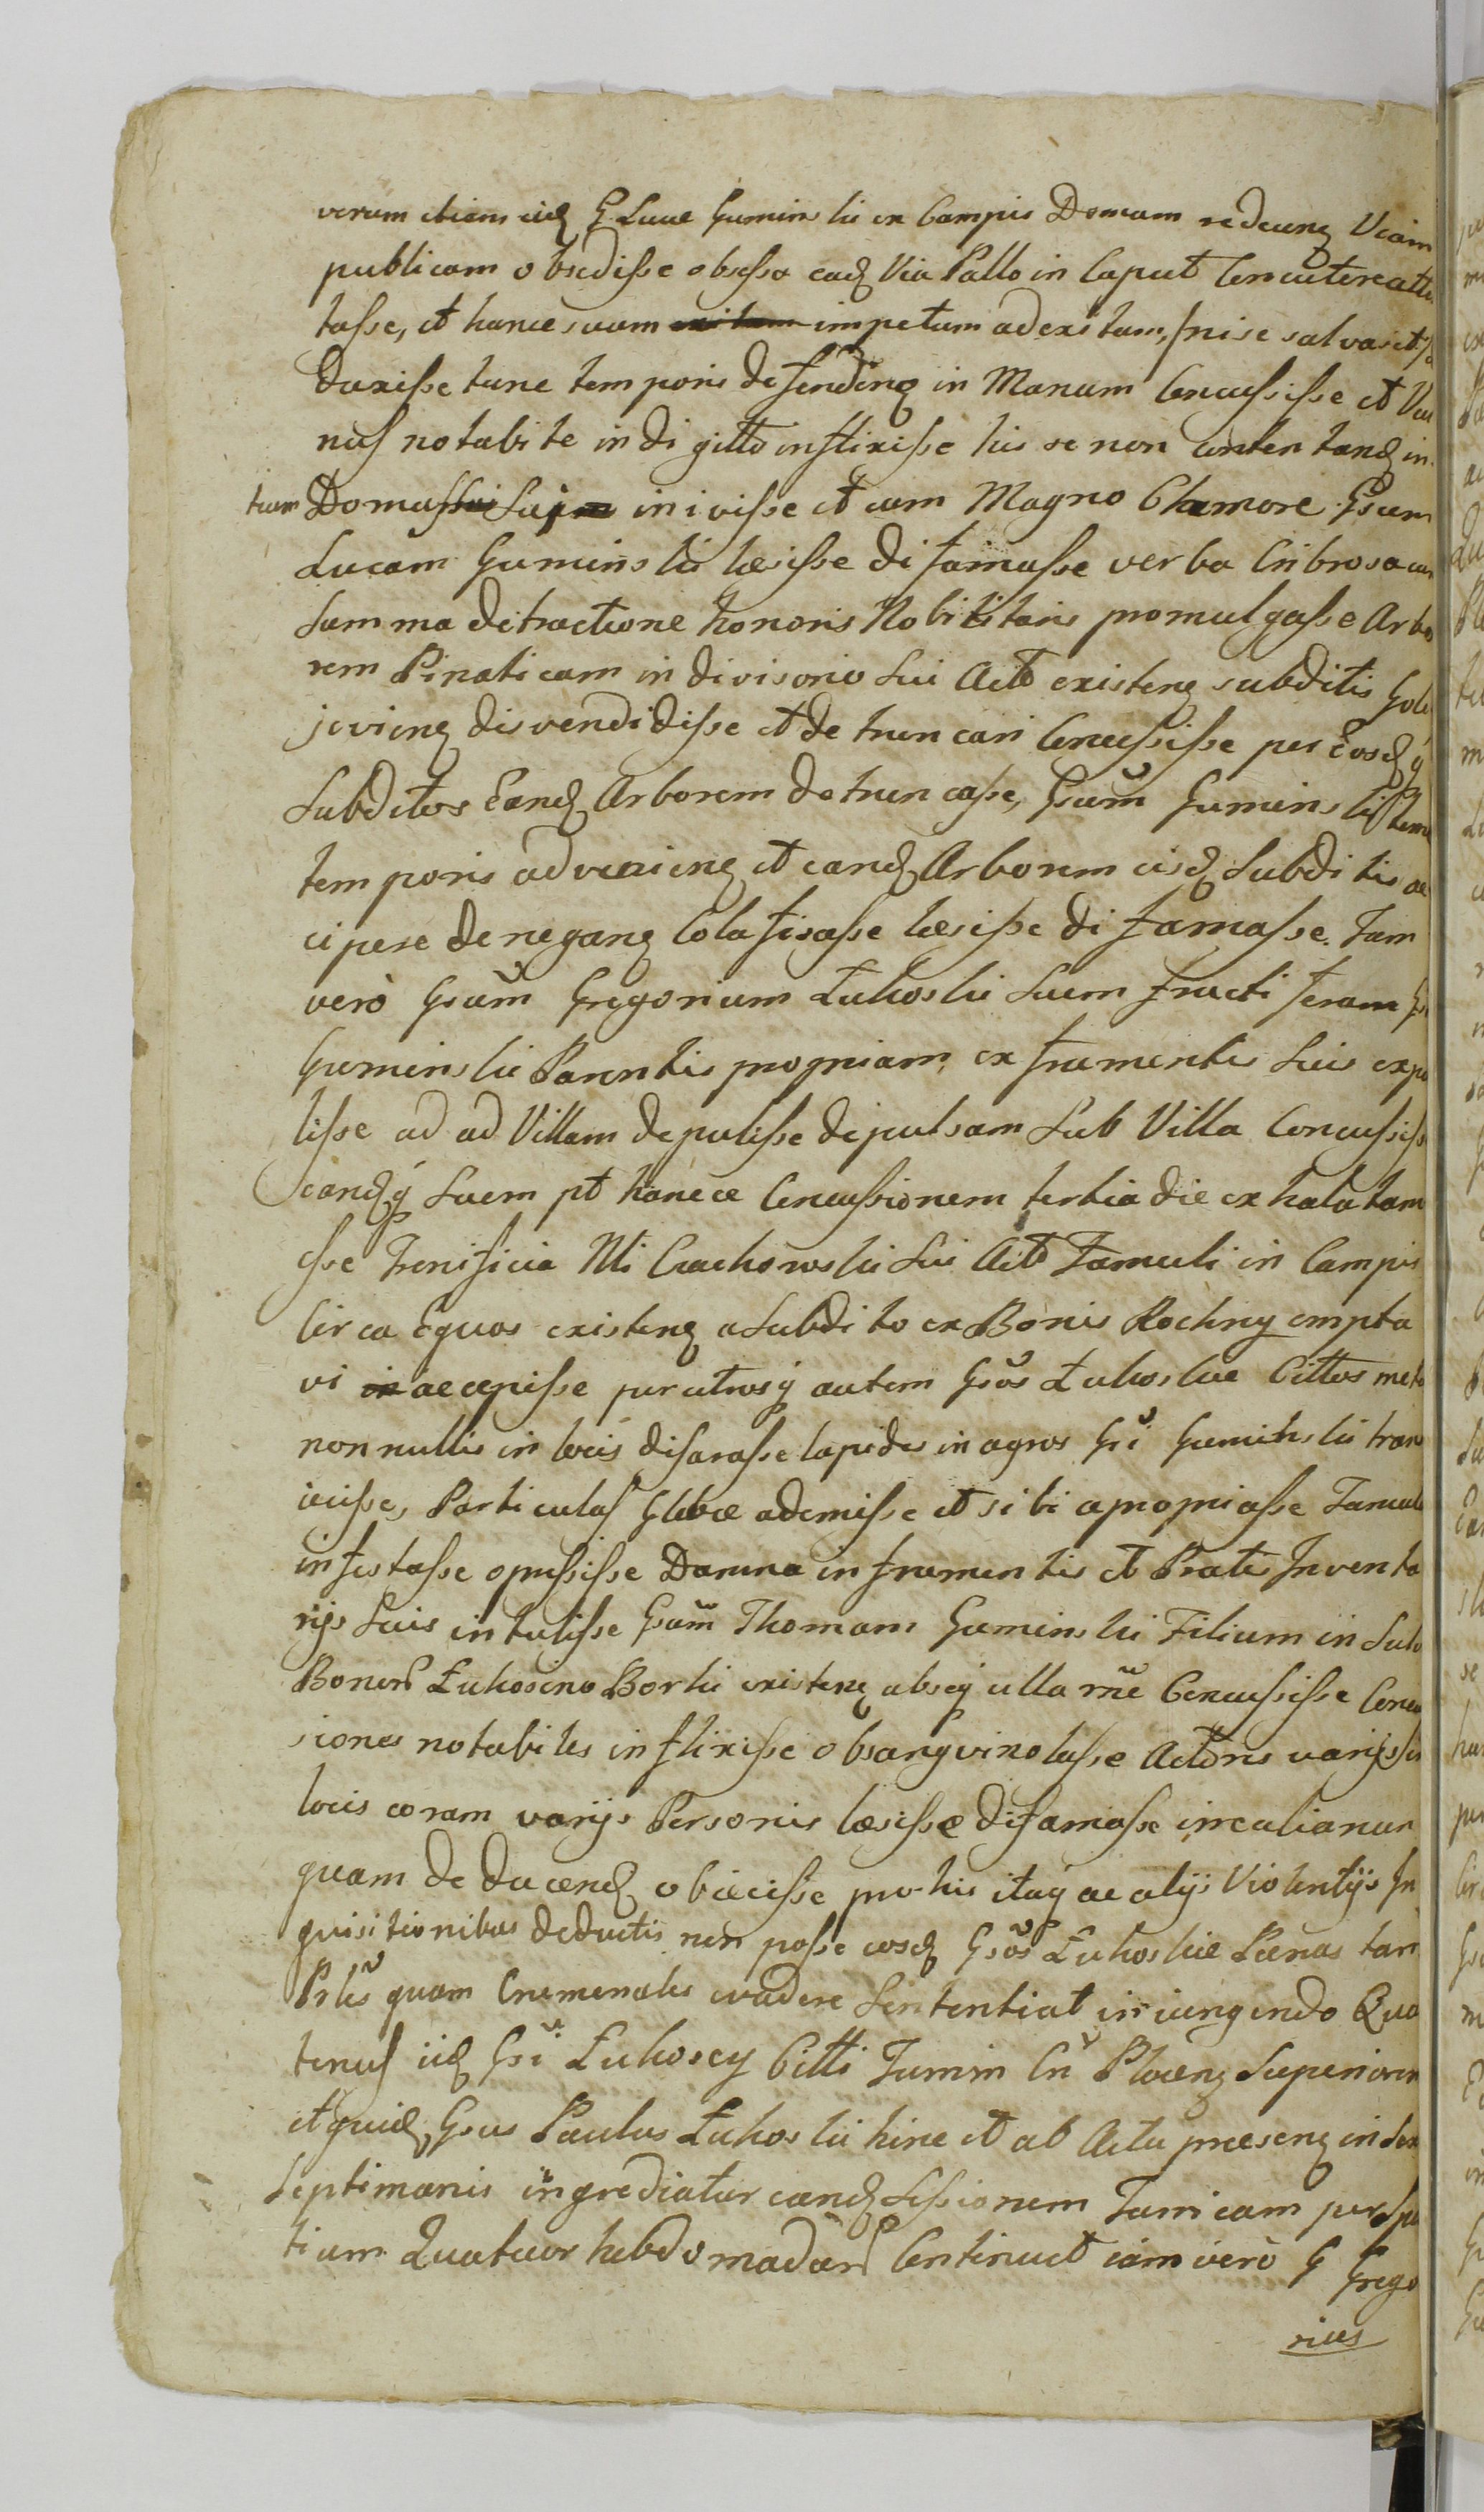 verum etiam eid G Lucæ Guminskii ex Campis Domum redeunt Viam
publicam obsedisse obsessa ead Via Pallo in Caput Concutere atten
tasse, et hunc suum impetum ad exitum, ni se salvasset
duxisse tunc temporis defendent in Manum Concussisse et Vul
nus notabile in digitto inflixisse his se non contentand in
tum Domus Sui inivisse et cum Magno Clamore Gsum
Lucam Guminskii læsisse difamasse verba Cribrosa cum
Summa detractione honoris Nobilitaris promulgasse Arbo
rem Pinaticam in divisorio Sui Actō existent subditis
disvendidisse et detruncari Concussisse per Eosdq
Subditos Eand Arborem detruncasse, Gsum Guminskii tunc
temporis advenient et eand Arborem eisd Subditis ac
cipere denegant Colafisasse læsisse difamasse. Jam
verò Gsum Gregorium Łukoskii Suem fructiferam Gsi
Guminskii Parentis propriam, ex frumentis Suis expu
lisse ad ad Villam depulisse depulsam Sub Villa Concussiss
eandq Suem pt hancce Concussionem tertia die exhalatam
esse Frenificia Nli Czachowskii Sui Actō Famuli in Campis
Circa Equos existent a Subdito ex Bonis Rochny empta
vi accepisse per utrosq autem Gsos Łukoskie Cittos metas
non nullis in locis disarasse lapides in agros Gsi Guminskii trans
iecisse, Particulas Glebæ ademisse et sibi apropriasse
infestasse opressisse Damna in frumentis et Pratis Inventa
rijs Suis intulisse Gsum Thomam Guminskii Filium in Solo
Bonor Łukosino Borki existent absq ulla rñe Concussisse Concus
siones notabiles inflixisse obsangvinolasse Actōris varijs in
locis coram varijs Personis læsisse difamasse
quam deducend obiecisse pro his itaq ac alijs Violentijs In
quisitionibus deductis non posse eosd Gsos Łukoskie Pænas tam
Prles quam Cremenales evadere Sententiat iniungendo Qua
tenus iid Gsi Łukoscy Citti Turrim Cñ Plocens Superiorem
et quid, Gsus Paulus Łukoskii hinc et ab Actu præsent in Sex
Septimanis ingrediatur eand Sessionem Turricam per Spa
tium Quatuor hebdomadar Continuet iam verò G Grego
rius